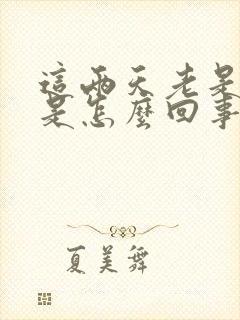 這兩天老是
是怎麼回事
夏美舞